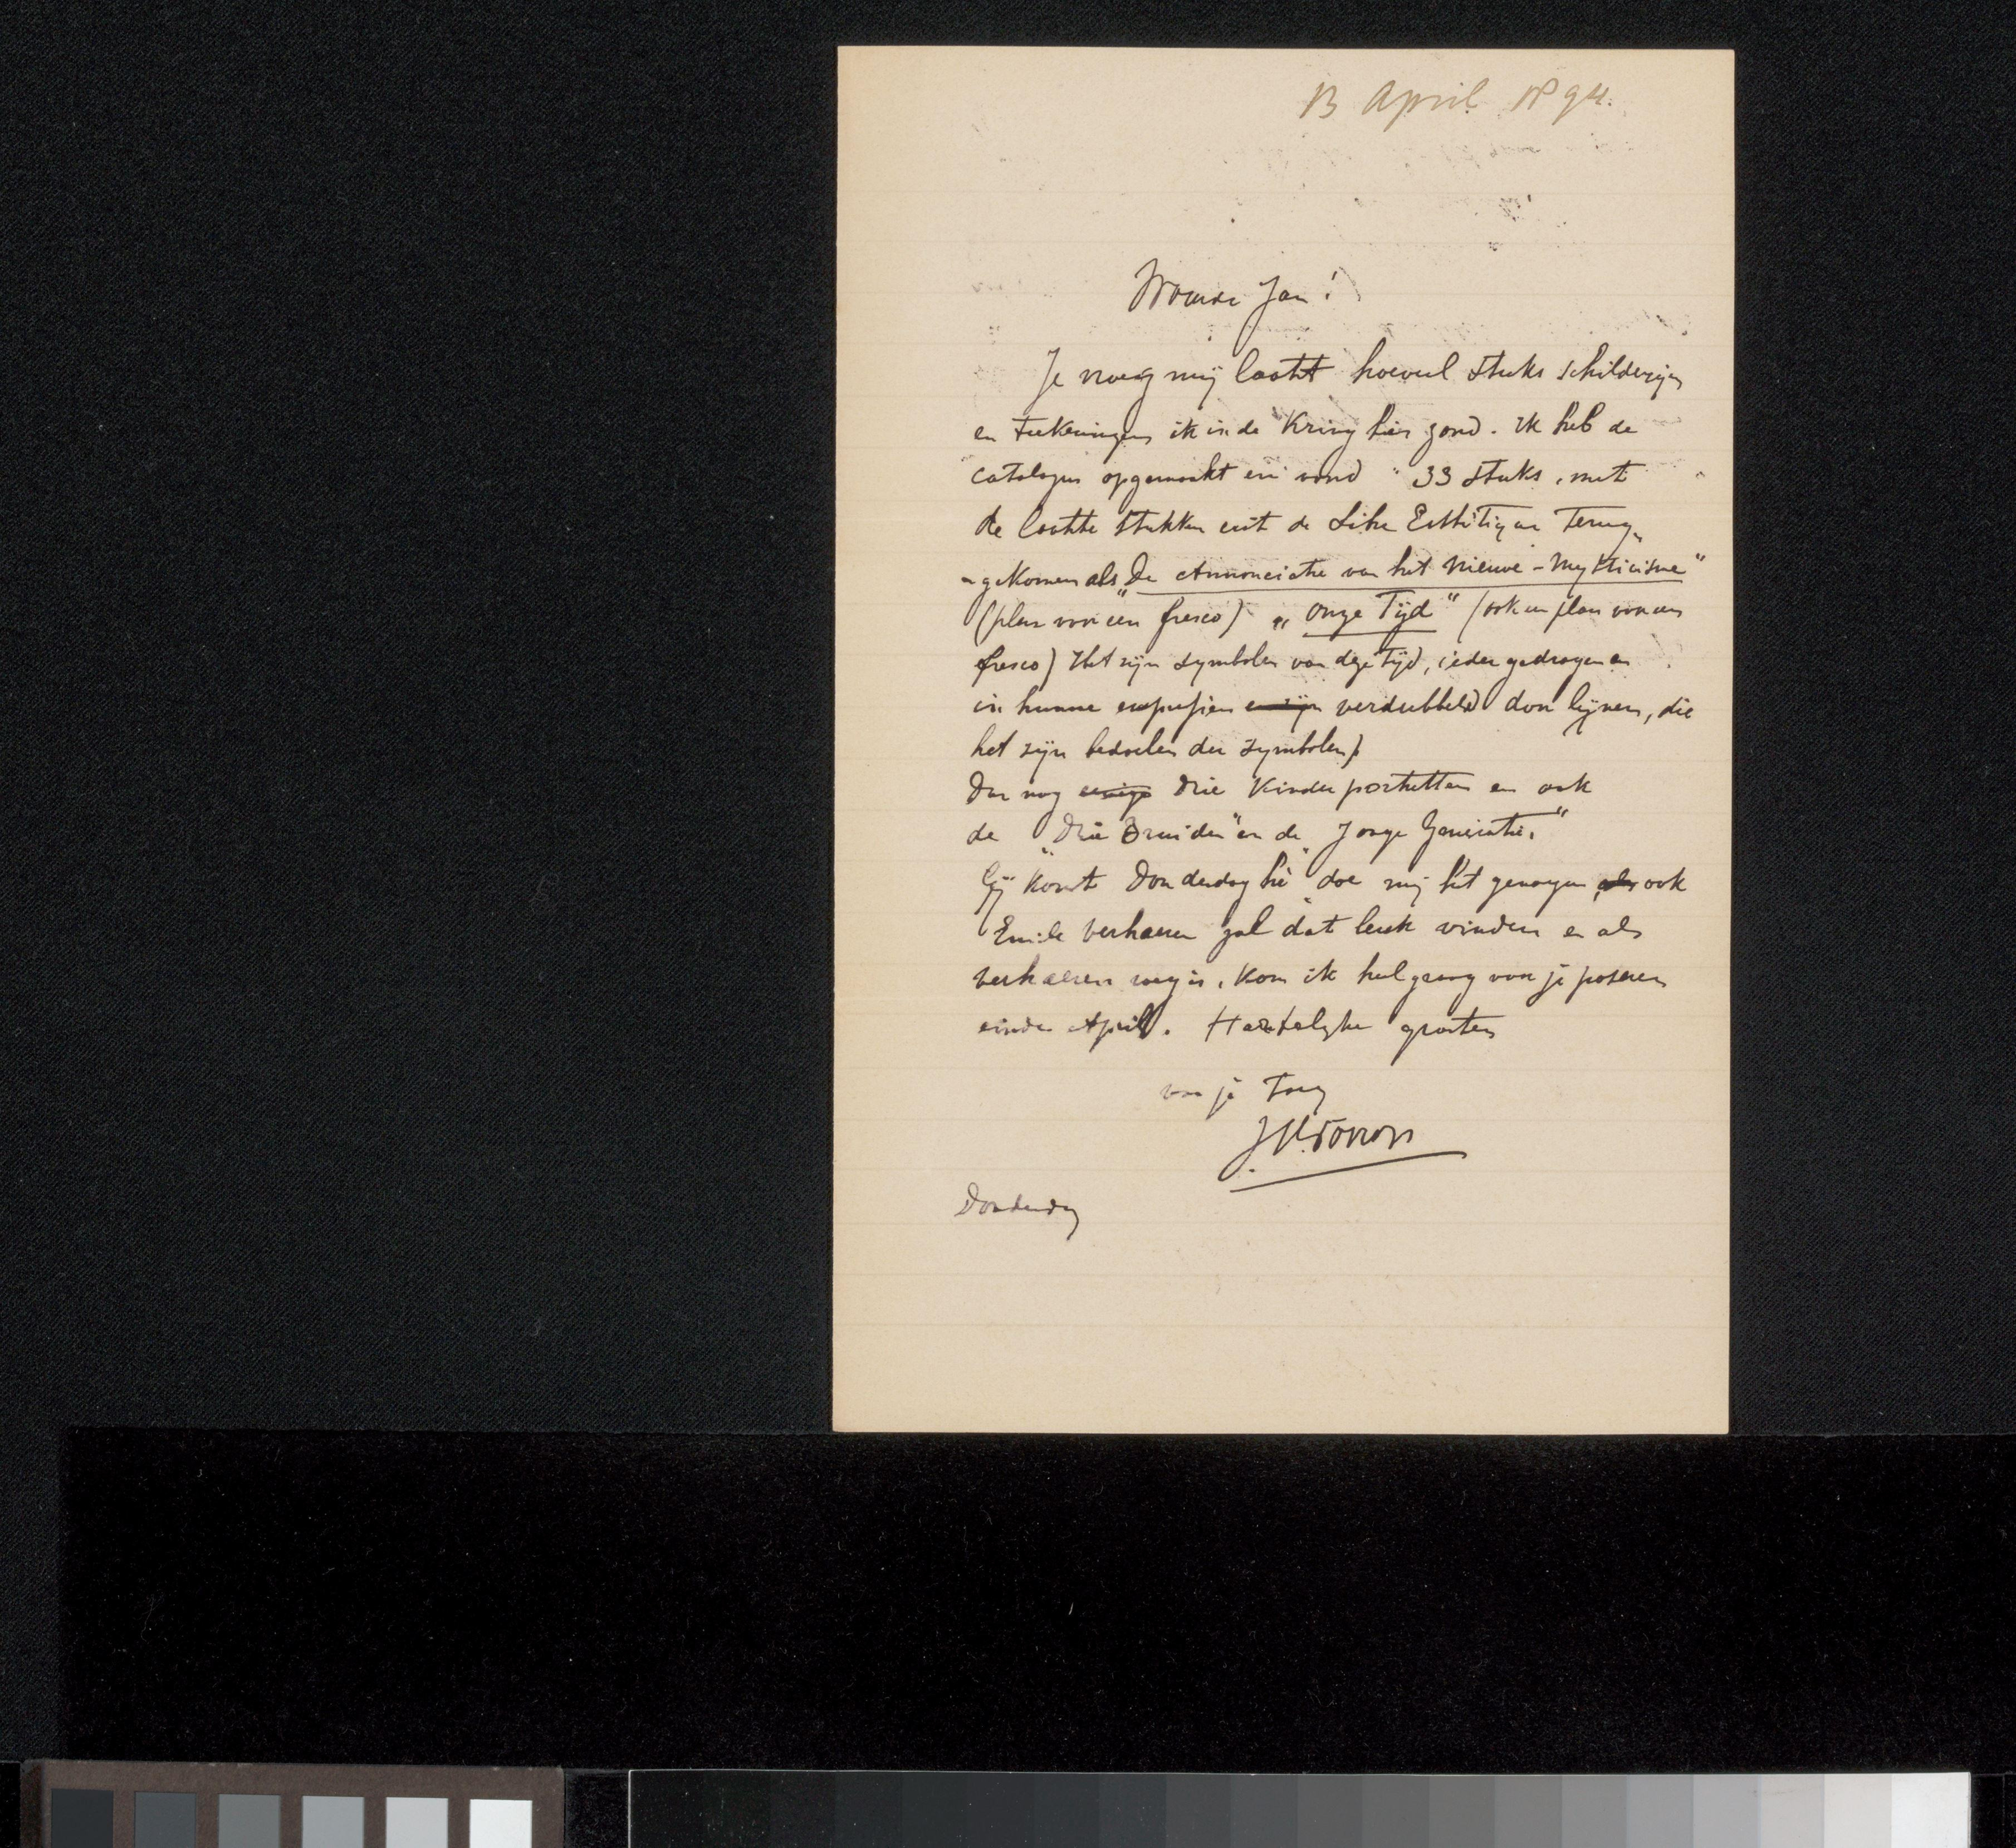 13 April 1894.
Waarde Jan!
Je vroeg mij laatst hoeveel stuks schilderijen
en teekeningen ik in de Kring hier zond. Ik heb de
catalogus opgemaakt en vond 33 stuks, met
de laatste stukken uit de Libre Esthétique terug„
„gekomen als „De Annonciatie van het Nieuwe-Mysticisme"
(plan voor een fresco) „Onze Tijd" (ook een plan voor een
fresco) Het zijn symbolen van deze Tijd, ieder gedragen en
in hunne expressien en zijn verdubbeld door lijnen, die
het zijn bedoelen der symbolen).
Dan nog eenige drie Kinderportretten en ook
de „Drie Bruiden" en de „Jonge Generatie."
Gij komt Donderdag hè doe mij het genoegen als ook
Emile Verhaeren zal dat leuk vinden en als
Verhaeren weg is, kom ik heel graag voor je poseren
einde April. Hartelijke groeten
van je Toorop
J.Th.Toorop
Donderdag